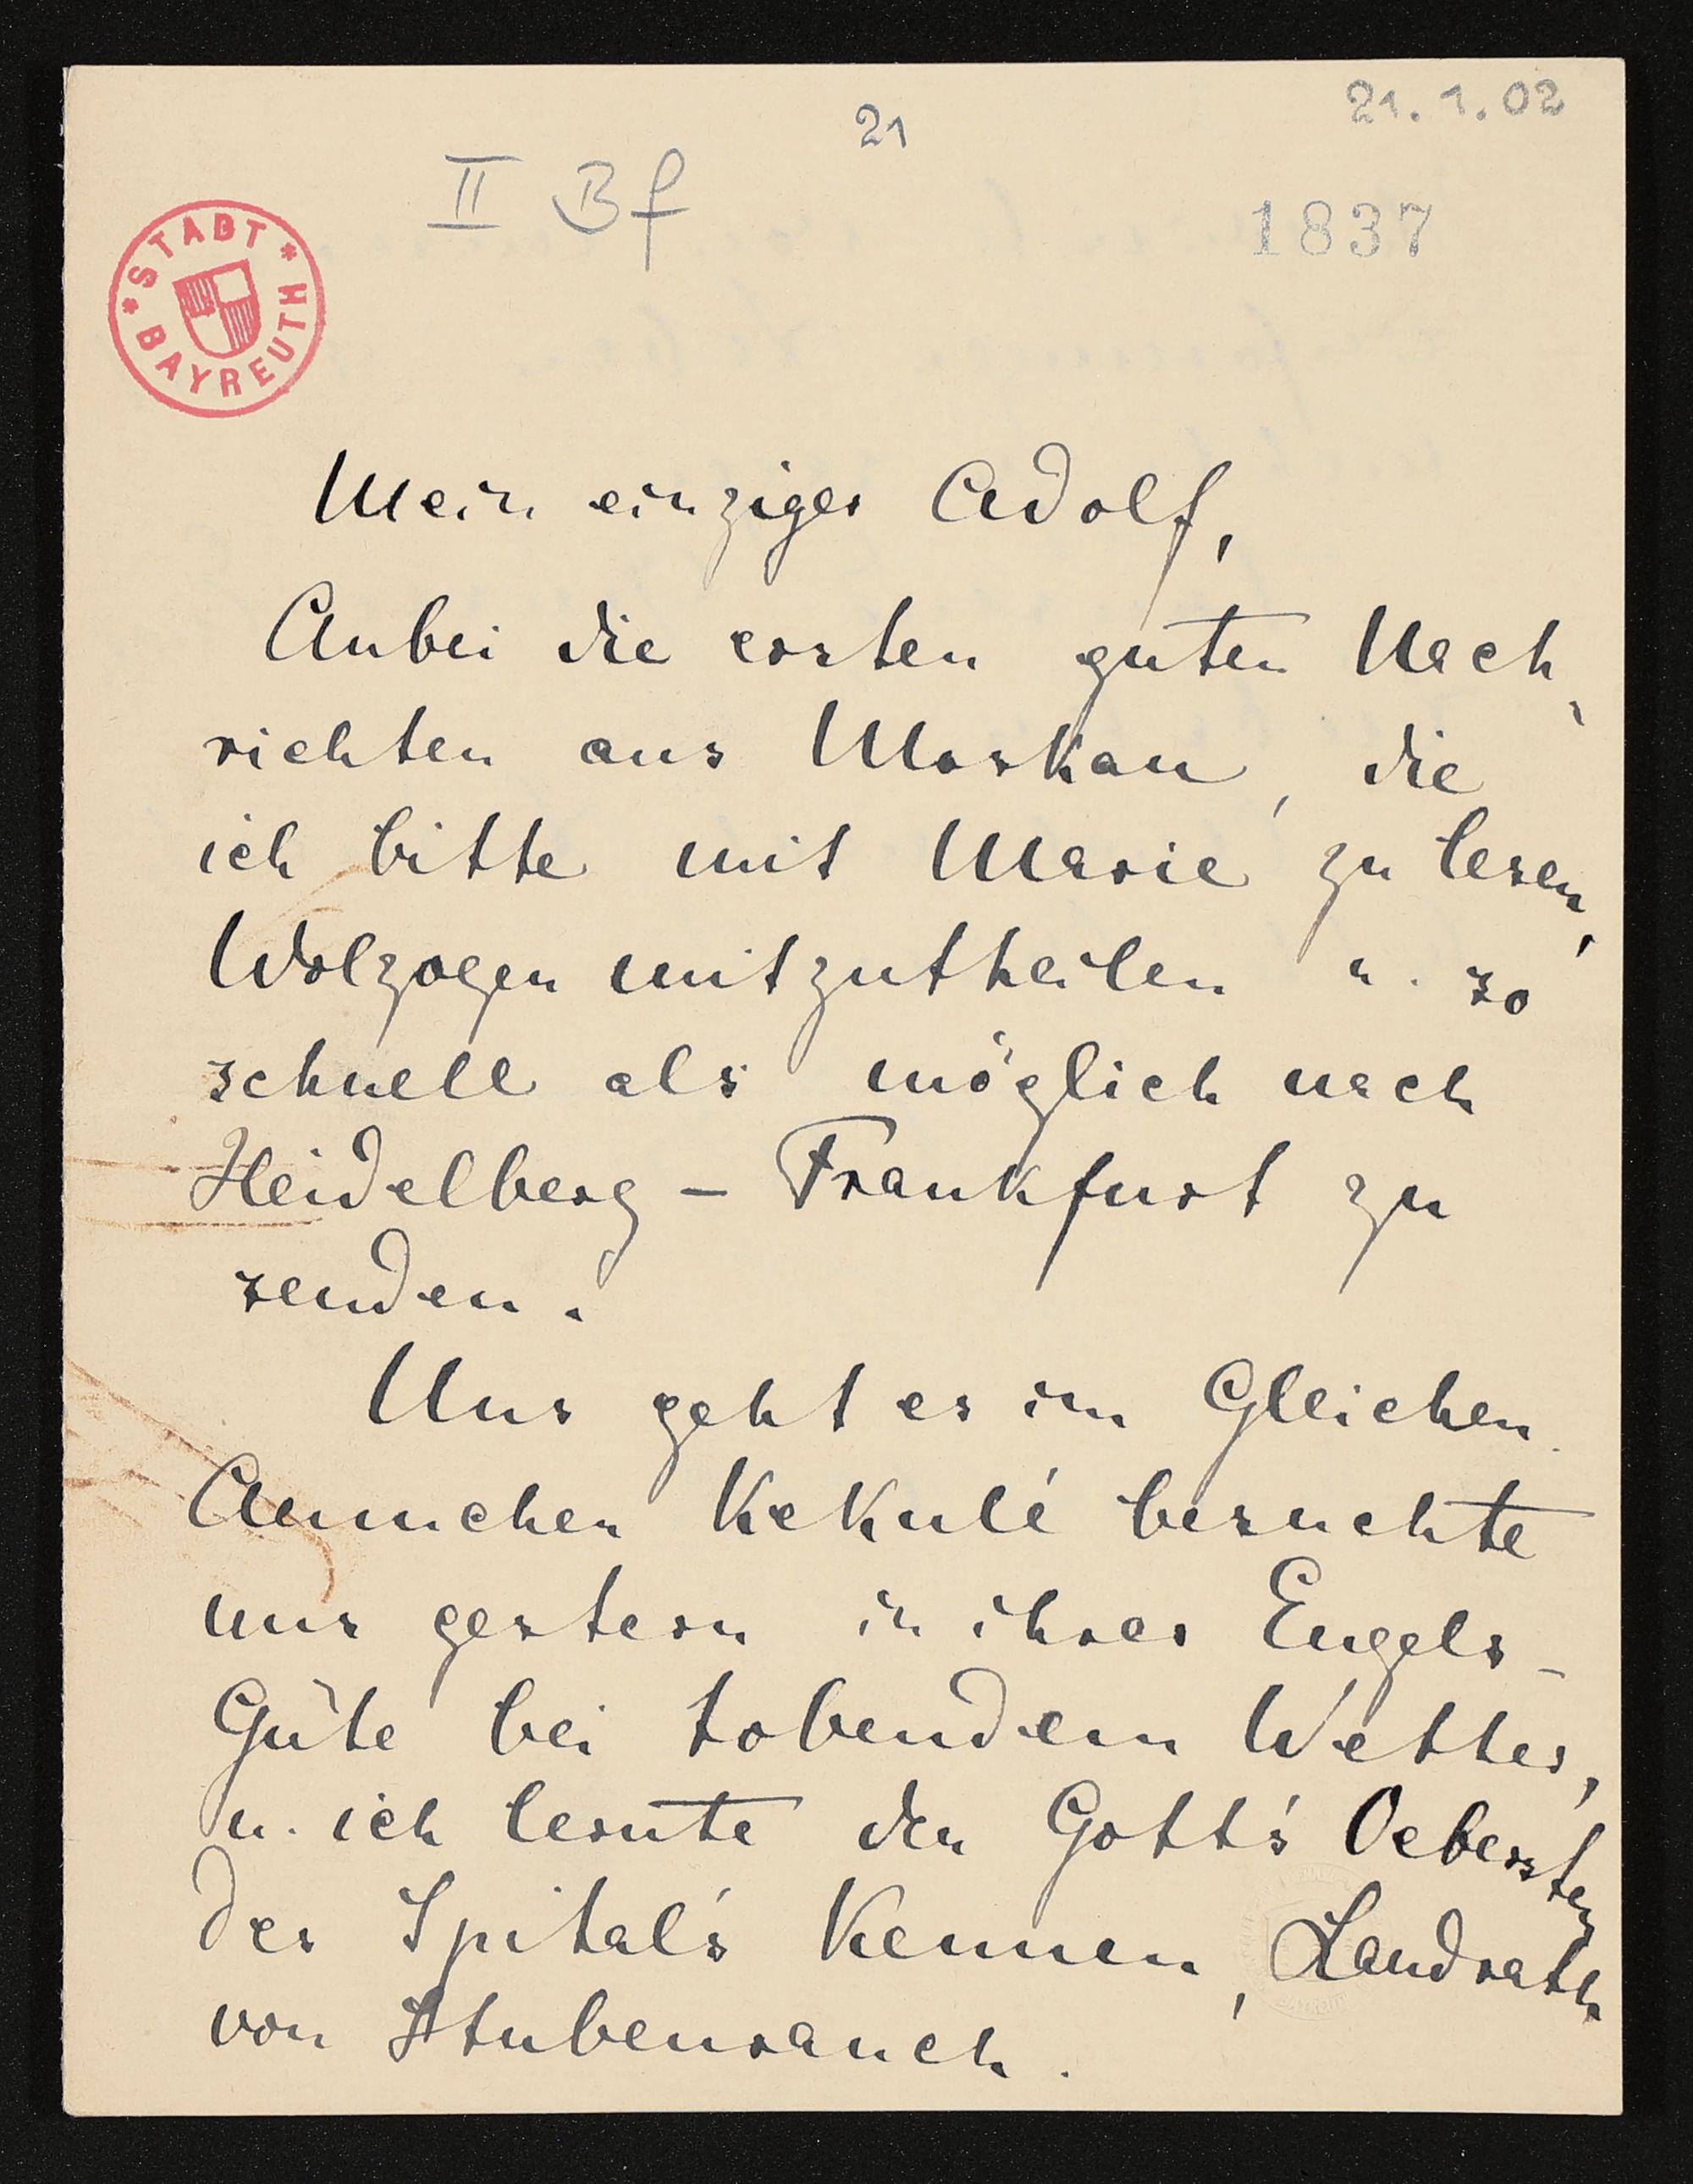 21.1.02
21
II Bf
1837
STADT
BAYREUTH
Mein einziger Adolf,
Anbei die ersten guten Nach-
richten aus Moskau, die
ich bitte mit Marie zu lesen,
Wolzogen mitzutheilen u. so
schnell als möglich nach
Heidelberg - Frankfurt zu
senden.
Uns geht es im Gleichen.
Aennchen Kekulé besuchte
uns gestern in ihrer Engels-
Güte bei tobendem Wetter,
u. ich lernte den Gott's Oebersten
des Spital's kennen, Landrath
von Stubenrauch.